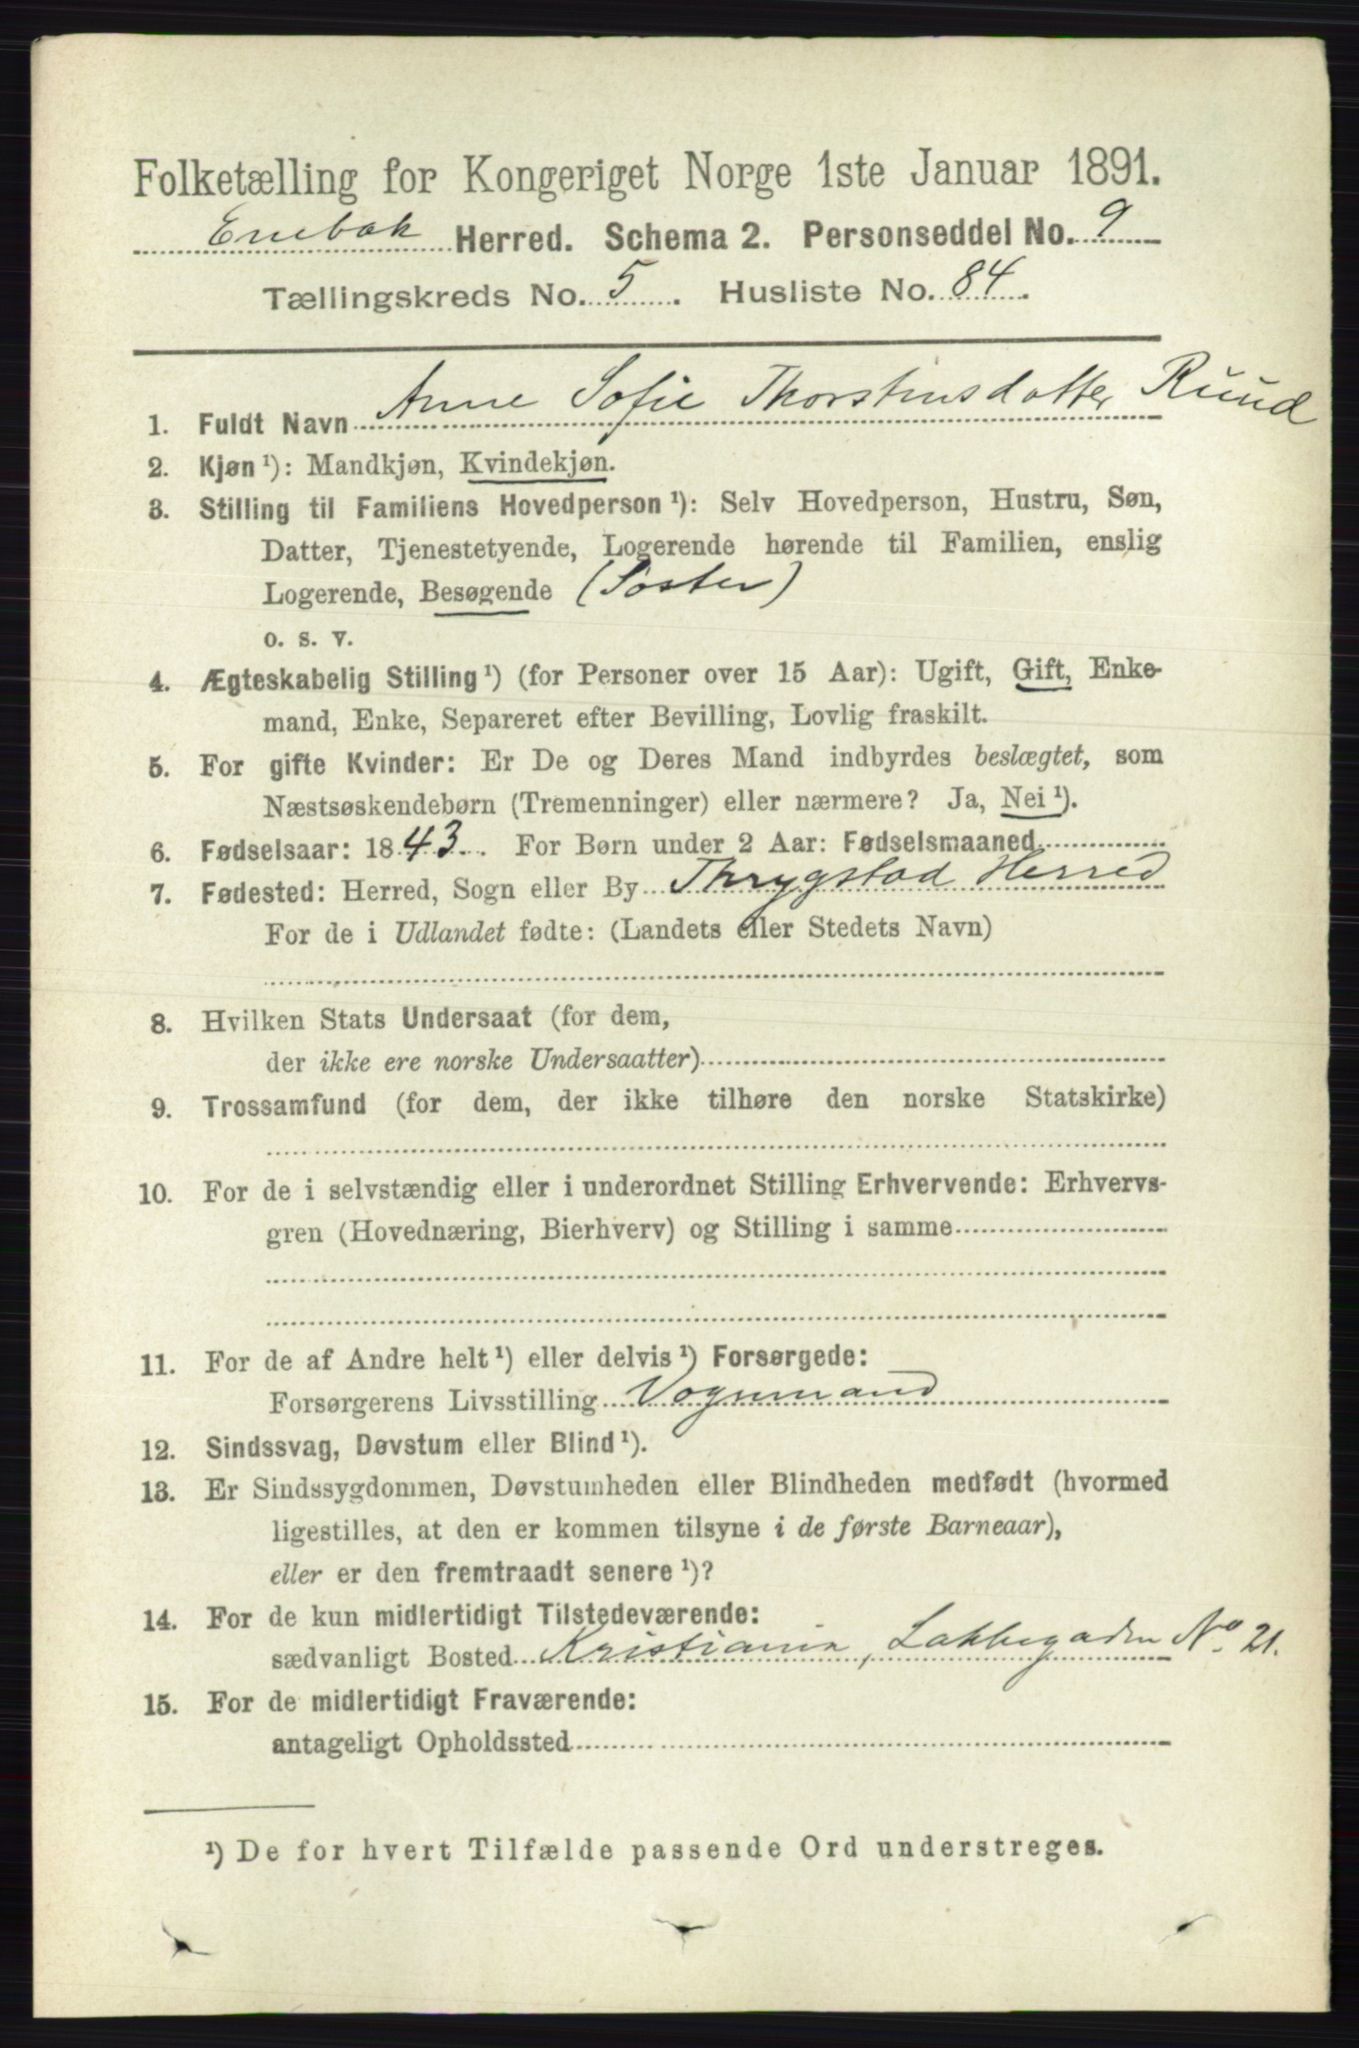 Folketælling for Kongeriget Norge 1ste Januar 1891.
Enebak Herred. Schema 2. Personseddel No. 9
Tællingskreds No. 5. Husliste No. 84.
1. Fuldt Navn Anne Sofie Thorstensdatter Ruud
2. Kjøn¹): Mandkjøn, Kvindekjøn.
3. Stilling til Familiens Hovedperson¹): Selv Hovedperson, Hustru, Søn,
Datter, Tjenestetyende, Logerende hørende til Familien, enslig
Logerende, Besøgende (Søster)
o. s. v.
4. Ægteskabelig Stilling¹) (for Personer over 15 Aar): Ugift, Gift, Enke-
mand, Enke, Separeret efter Bevilling, Lovlig fraskilt.
5. For gifte Kvinder: Er De og Deres Mand indbyrdes beslægtet, som
Næstsøskendebørn (Tremenninger) eller nærmere? Ja, Nei¹).
6. Fødselsaar: 1843. For Børn under 2 Aar: Fødselsmaaned
7. Fødested: Herred, Sogn eller By Thrygstad Herred
For de i Udlandet fødte: (Landets eller Stedets Navn)
8. Hvilken Stats Undersaat (for dem,
der ikke ere norske Undersaatter)
9. Trossamfund (for dem, der ikke tilhøre den norske Statskirke)
10. For de i selvstændig eller i underordnet Stilling Erhvervende: Erhvervs-
gren (Hovednæring, Bierhverv) og Stilling i samme
11. For de af Andre helt¹) eller delvis¹) Forsørgede:
Forsørgerens Livsstilling Vognmand
12. Sindssvag, Døvstum eller Blind¹).
13. Er Sindssygdommen, Døvstumheden eller Blindheden medfødt (hvormed
ligestilles, at den er kommen tilsyne i de første Barneaar),
eller er den fremtraadt senere¹)?
14. For de kun midlertidigt Tilstedeværende:
sædvanligt Bosted Kristiania, Lakkegaden No. 21.
15. For de midlertidigt Fraværende:
antageligt Opholdssted
¹) De for hvert Tilfælde passende Ord understreges.